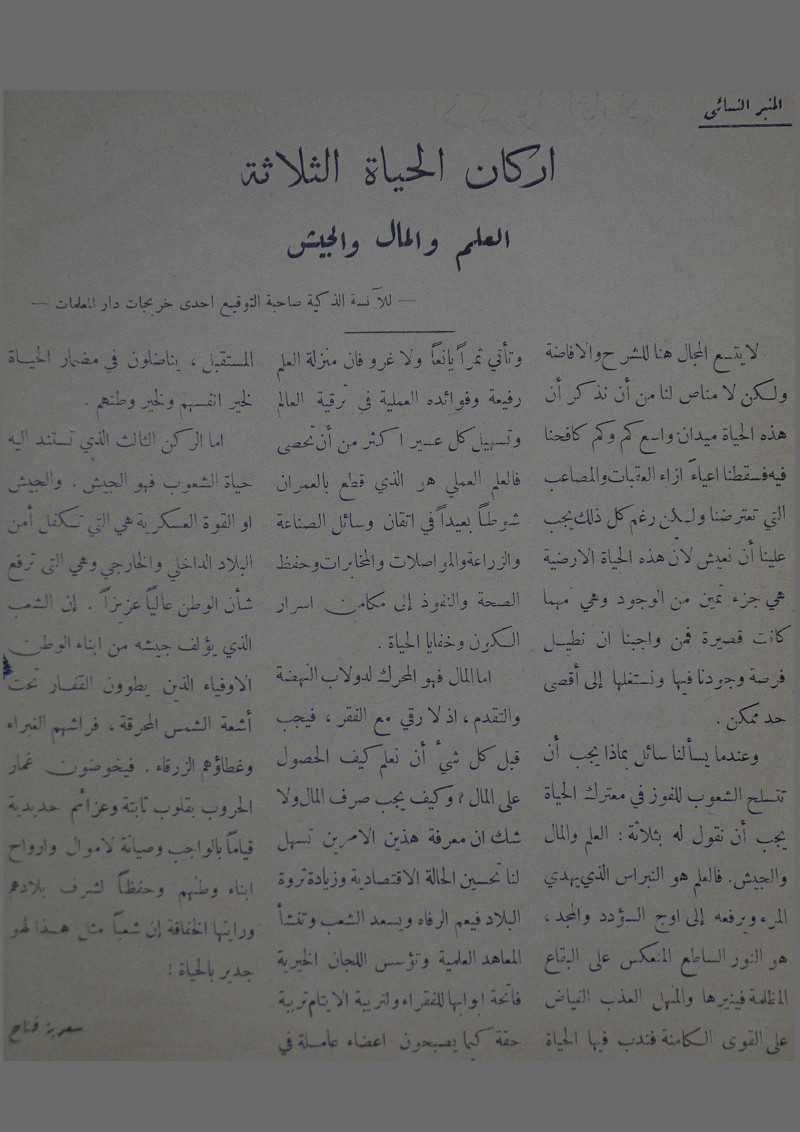 المنبر النسائي
اركان الحياة الثلاثة
العلم والمال والجيش
— للآنسة الذكية صاحبة التوقيع احدى خريجات دار المعلمات —
لا يتسع المجال هنا للشرح والافاضة
ولكن لا مناص لنا من أن نذكر أن
هذه الحياة ميدان واسع كم وكم كافحنا
فيه فسقطنا اعياءً ازاء العقبات والمصاعب
التي تعترضنا ولكن رغم كل ذلك يجب
علينا أن نعيش لأن هذه الحياة الارضية
هي جزء ثمين من الوجود وهي مهما
كانت قصيرة فمن واجبنا ان نطيل
فرصة وجودنا فيها ونستغلها إلى أقصى
حد ممكن .
وعندما يسألنا سائل بماذا يجب أن
تتسلح الشعوب للفوز في معترك الحياة
يجب أن نقول له بثلاثة : العلم والمال
والجيش. فالعلم هو النبراس الذي يهدي
المرء ويرفعه إلى اوج السؤدد والمجد ،
هو النور الساطع المنعكس على البقاع
المظلمة فينيرها والمنهل العذب الفياض
على القوى الكامنة فتدب فيها الحياة
وتأتي ثمراً يانعاً ولا غرو فان منزلة العلم
رفيعة وفوائده العملية في ترقية العالم
وتسهيل كل عسير اكثر من أن تحصى
فالعلم العملي هو الذي قطع بالعمران
شوطاً بعيداً في اتقان وسائل الصناعة
والزراعة والمواصلات والمخابرات وحفظ
الصحة والنفوذ إلى مكامن اسرار
الكون وخفايا الحياة .
اما المال فهو المحرك لدولاب النهضة
والتقدم ، اذ لا رقي مع الفقر ، فيجب
قبل كل شيء أن نعلم كيف الحصول
على المال ؟ وكيف يجب صرف المال ولا
شك ان معرفة هذين الامرين تسهل
لنا تحسين الحالة الاقتصادية وزيادة ثروة
البلاد فيعم الرفاه ويسعد الشعب وتنشأ
المعاهد العلمية وتؤسس اللجان الخيرية
فاتحة ابوابها للفقراء ولتربية الايتام تربية
حقة كيما يصبحون اعضاء عاملة في
المستقبل ، يناضلون في مضمار الحياة
لخير انفسهم ولخير وطنهم .
اما الركن الثالث الذي تستند اليه
حياة الشعوب فهو الجيش . والجيش
او القوة العسكرية هي التي تتكفل أمن
البلاد الداخلي والخارجي وهي التي ترفع
شأن الوطن عالياً عزيزاً . إن الشعب
الذي يؤلف جيشه من ابناء الوطن
الاوفياء الذين يطوون القفار تحت
أشعة الشمس المحرقة ، فراشهم الغبراء
وغطاؤهم الزرقاء . فيخوضون غمار
الحروب بقلوب ثابتة وعزائم حديدية
قياماً بالواجب وصيانة لاموال وارواح
ابناء وطنهم وحفظاً لشرف بلادهم
ورايتها الخفاقة إن شعباً مثل هذا لهو
جدير بالحياة !
سعرية فتاح